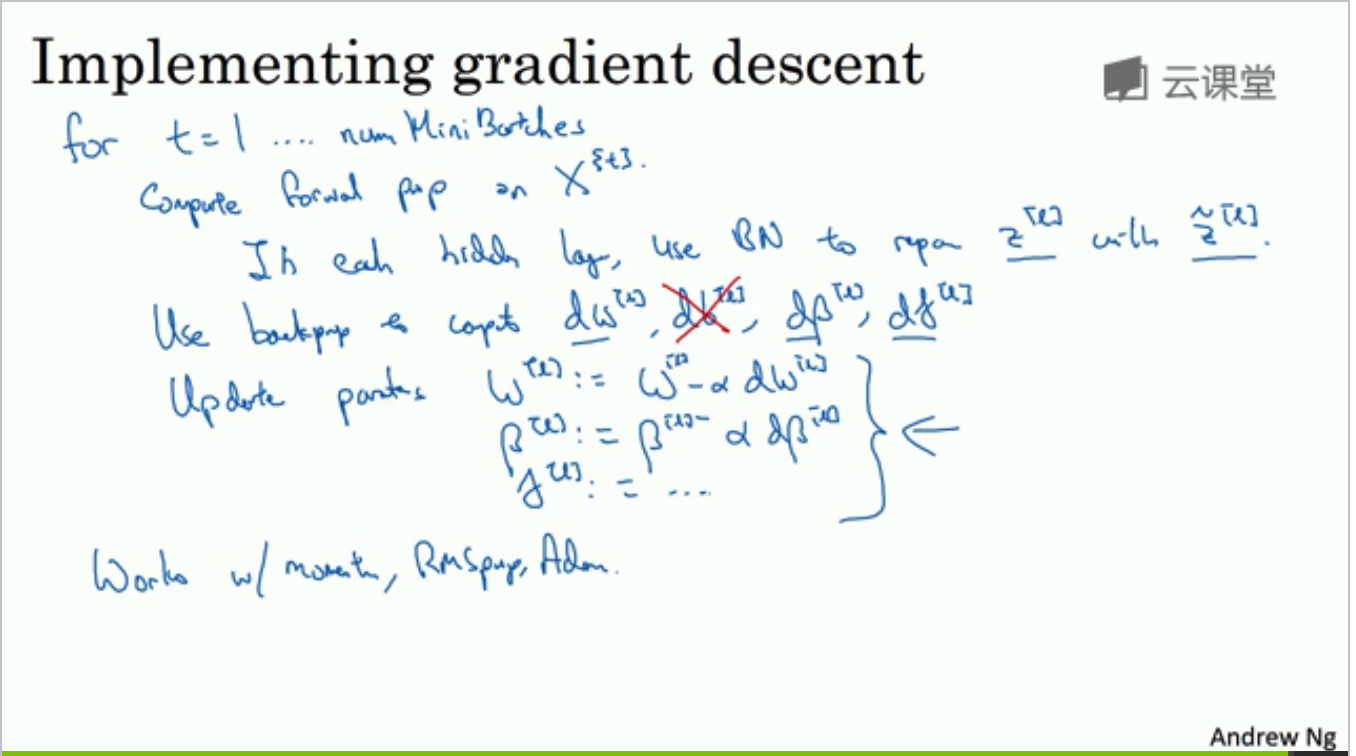 Implementing gradient descent
云课堂
for t = 1 .... num Mini Batches
Compute forwal pop on X^{t}.
In each hidden layer, use BN to repen z^[l] with z̃^[l].
Use backprop to compt dw^[l], db^[l], dβ^[l], dγ^[l]
Update parates W^[l] := W^[l] - α dw^[l]
β^[l] := β^[l] - α dβ^[l]
γ^[l] := ...
Works w/ momentum, RMSprop, Adam.
Andrew Ng